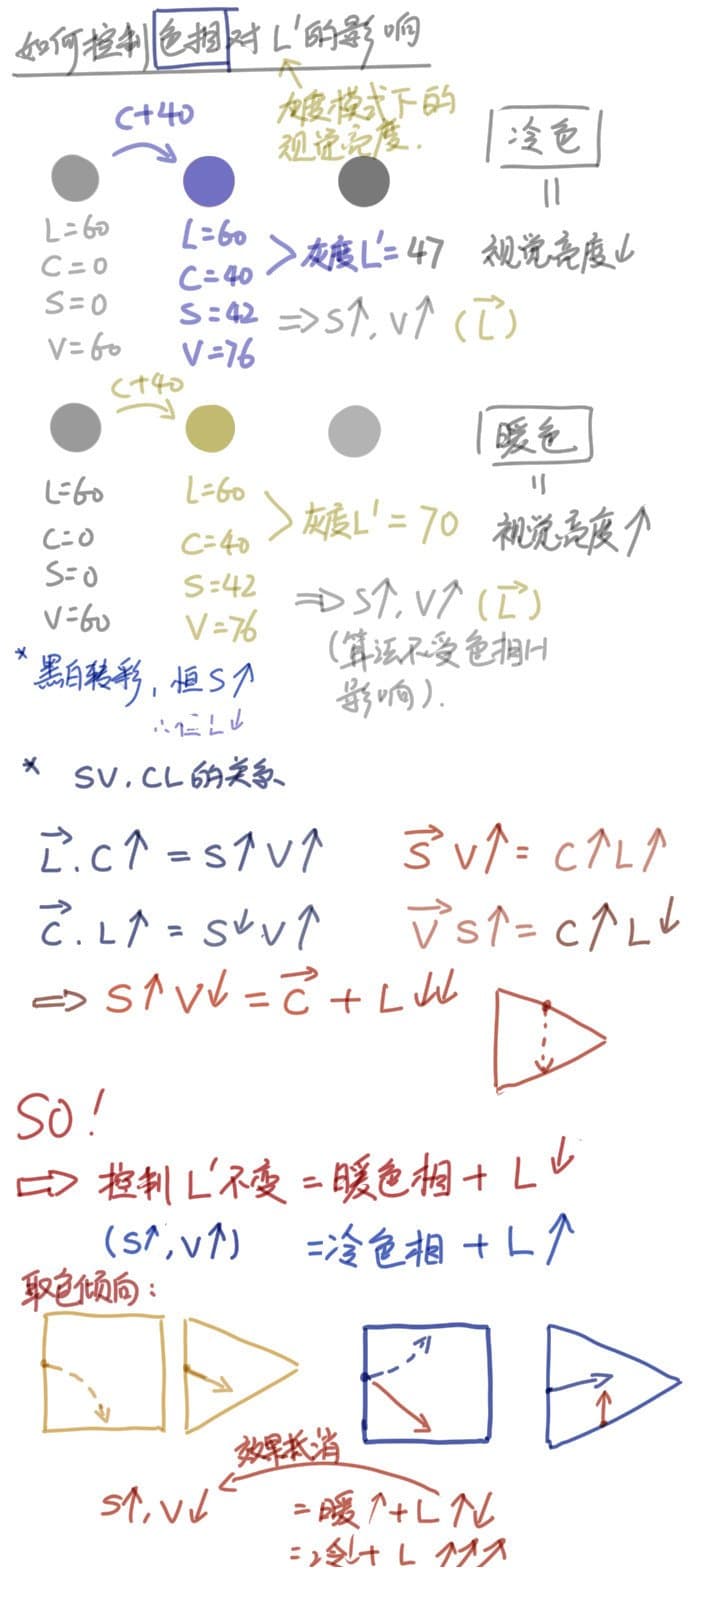 如何控制色相对L'的影响
灰度模式下的
视觉亮度.
C+40
冷色
L=60
C=0
S=0
V=60
L=60
C=40
S=42
V=76
> 灰度L'=47
=> S↑, V↑ (L→)
=
视觉亮度↓
C+40
暖色
L=60
C=0
S=0
V=60
L=60
C=40
S=42
V=76
> 灰度L'=70
=> S↑, V↑ (L→)
(算法不受色相H
影响).
=
视觉亮度↑
* 黑白转彩, 恒S↑
L↓
* SV.CL的关系
L→.C↑ = S↑V↑
S→ V↑= C↑L↑
C→.L↑ = S↓V↑
V→ S↑= C↑L↓
=> S↑V↓ = C→ + L↓↓
SO!
=> 控制L'不变 = 暖色相 + L↓
(S↑, V↑) =冷色相 + L↑
取色倾向:
效果抵消
S↑, V↓ = 暖↑+L↑↓
=冷↓+ L ↑↑↑